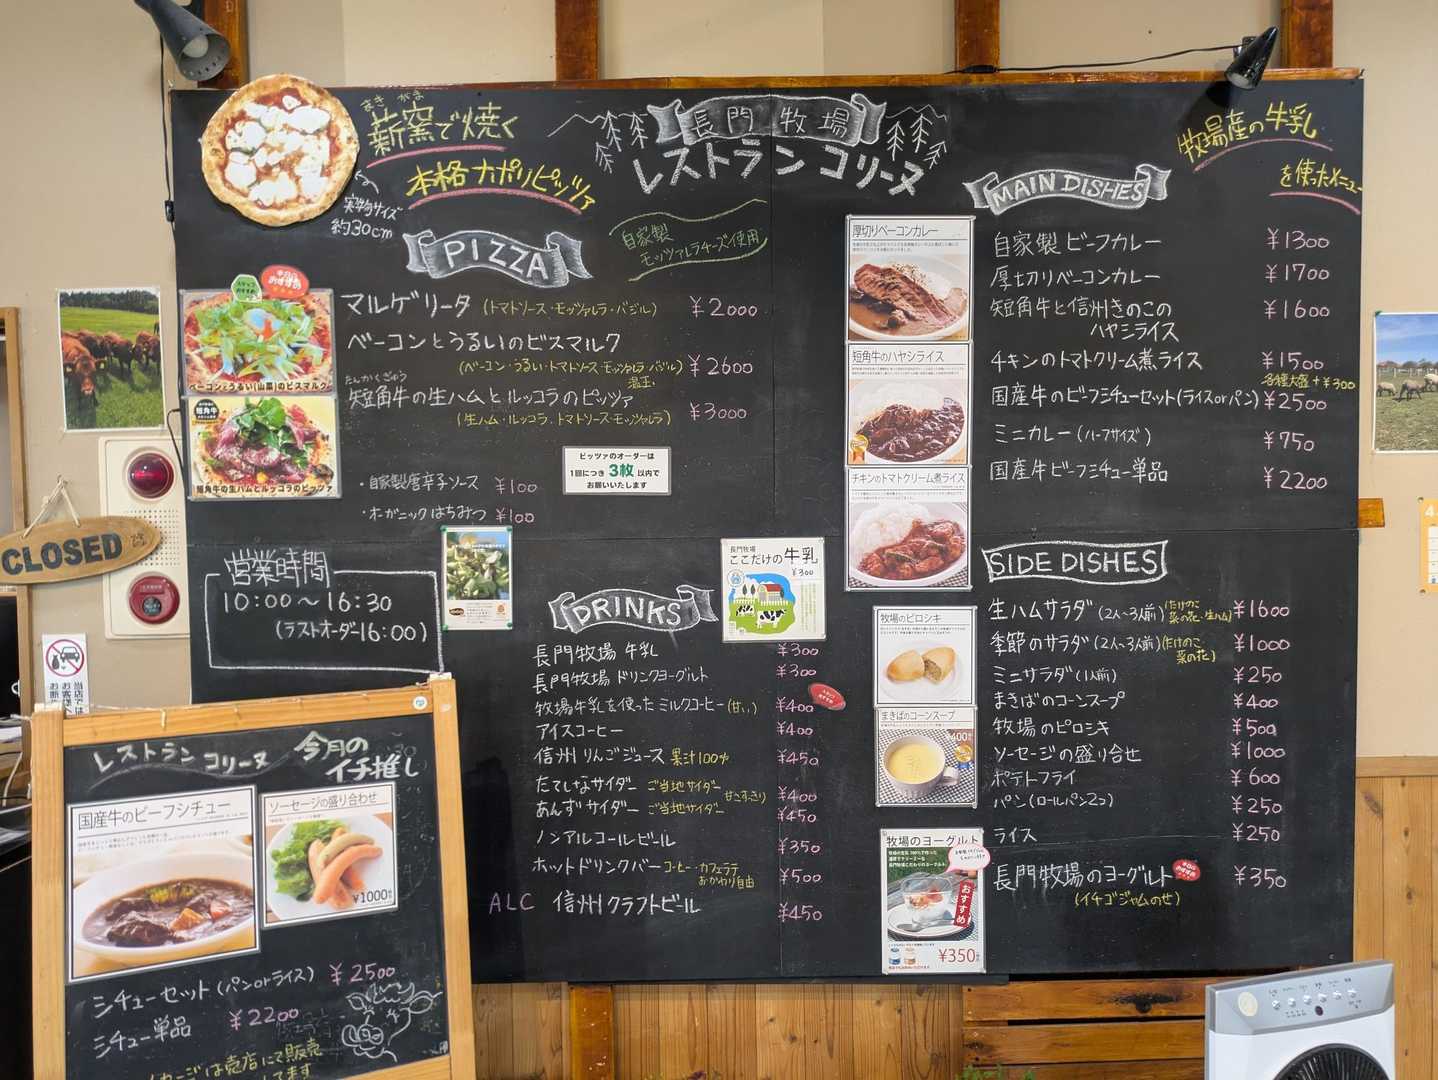 まき がま
薪窯で焼く
本格ナポリピッツァ
実物サイズ
約30cm
長門牧場
レストラン コリーヌ
牧場産の牛乳
を使ったメニュー
PIZZA
自家製
モッツァレラチーズ使用
マルゲリータ (トマトソース・モッツァレラ・バジル) ¥2000
ベーコンとうるいのビスマルク
(ベーコン・うるい・トマトソース・モッツァレラ・バジル) ¥2600
温玉
たんかくぎゅう
短角牛の生ハムとルッコラのピッツァ
(生ハム・ルッコラ・トマトソース・モッツァレラ) ¥3000
おすすめ
ベーコンとうるい(山菜)のビスマルク
短角牛
短角牛の生ハムとルッコラのピッツァ
・自家製唐辛子ソース ¥100
・オーガニックはちみつ ¥100
ピッツァのオーダーは
1回につき 3枚 以内で
お願いいたします
MAIN DISHES
自家製ビーフカレー ¥1300
厚切りベーコンカレー ¥1700
短角牛と信州きのこの
ハヤシライス ¥1600
チキンのトマトクリーム煮ライス ¥1500
各種大盛+¥300
国産牛のビーフシチューセット(ライスorパン) ¥2500
ミニカレー(ハーフサイズ) ¥750
国産牛ビーフシチュー単品 ¥2200
厚切りベーコンカレー
短角牛のハヤシライス
チキンのトマトクリーム煮ライス
CLOSED
営業時間
10:00～16:30
(ラストオーダー16:00)
DRINKS
長門牧場
ここだけの牛乳
¥300
長門牧場 牛乳 ¥300
長門牧場 ドリンクヨーグルト ¥300
牧場牛乳を使った ミルクコーヒー(甘い) ¥400
アイスコーヒー ¥400
信州りんごジュース 果汁100% ¥450
たてしなサイダー ご当地サイダー 甘さすっきり ¥400
あんずサイダー ご当地サイダー ¥450
ノンアルコールビール ¥350
ホットドリンクバー コーヒー・カフェラテ
おかわり自由 ¥500
ALC 信州クラフトビール ¥450
牧場のピロシキ
まきばのコーンスープ
¥400
牧場のヨーグルト
おすすめ
¥350
SIDE DISHES
生ハムサラダ(2人～3人前)(たけのこ 菜の花・生ハム) ¥1600
季節のサラダ(2人～3人前)(たけのこ 菜の花) ¥1000
ミニサラダ(1人前) ¥250
まきばのコーンスープ ¥400
牧場のピロシキ ¥500
ソーセージの盛り合せ ¥1000
ポテトフライ ¥600
パン(ロールパン2コ) ¥250
ライス ¥250
長門牧場のヨーグルト おすすめ ¥350
(イチゴジャムのせ)
当店では
お客様
お断
レストラン コリーヌ 今月の
イチ推し
国産牛のビーフシチュー
ソーセージの盛り合わせ
¥1000
シチューセット(パンorライス) ¥2500
シチュー単品 ¥2200
は売店にて販売
してます